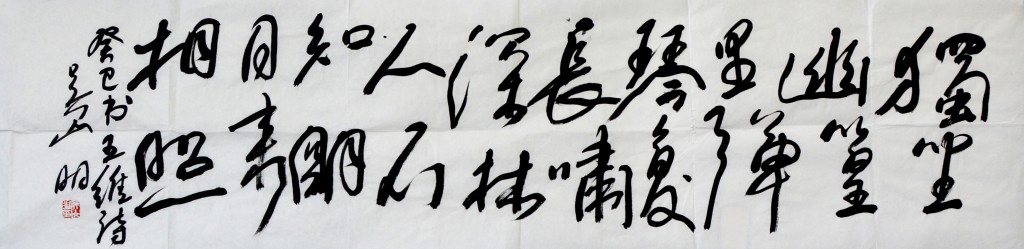 獨坐
幽篁
里彈
琴復
長嘯
深林
人不
知明
月來
相照
癸巳书王維詩
吴山明